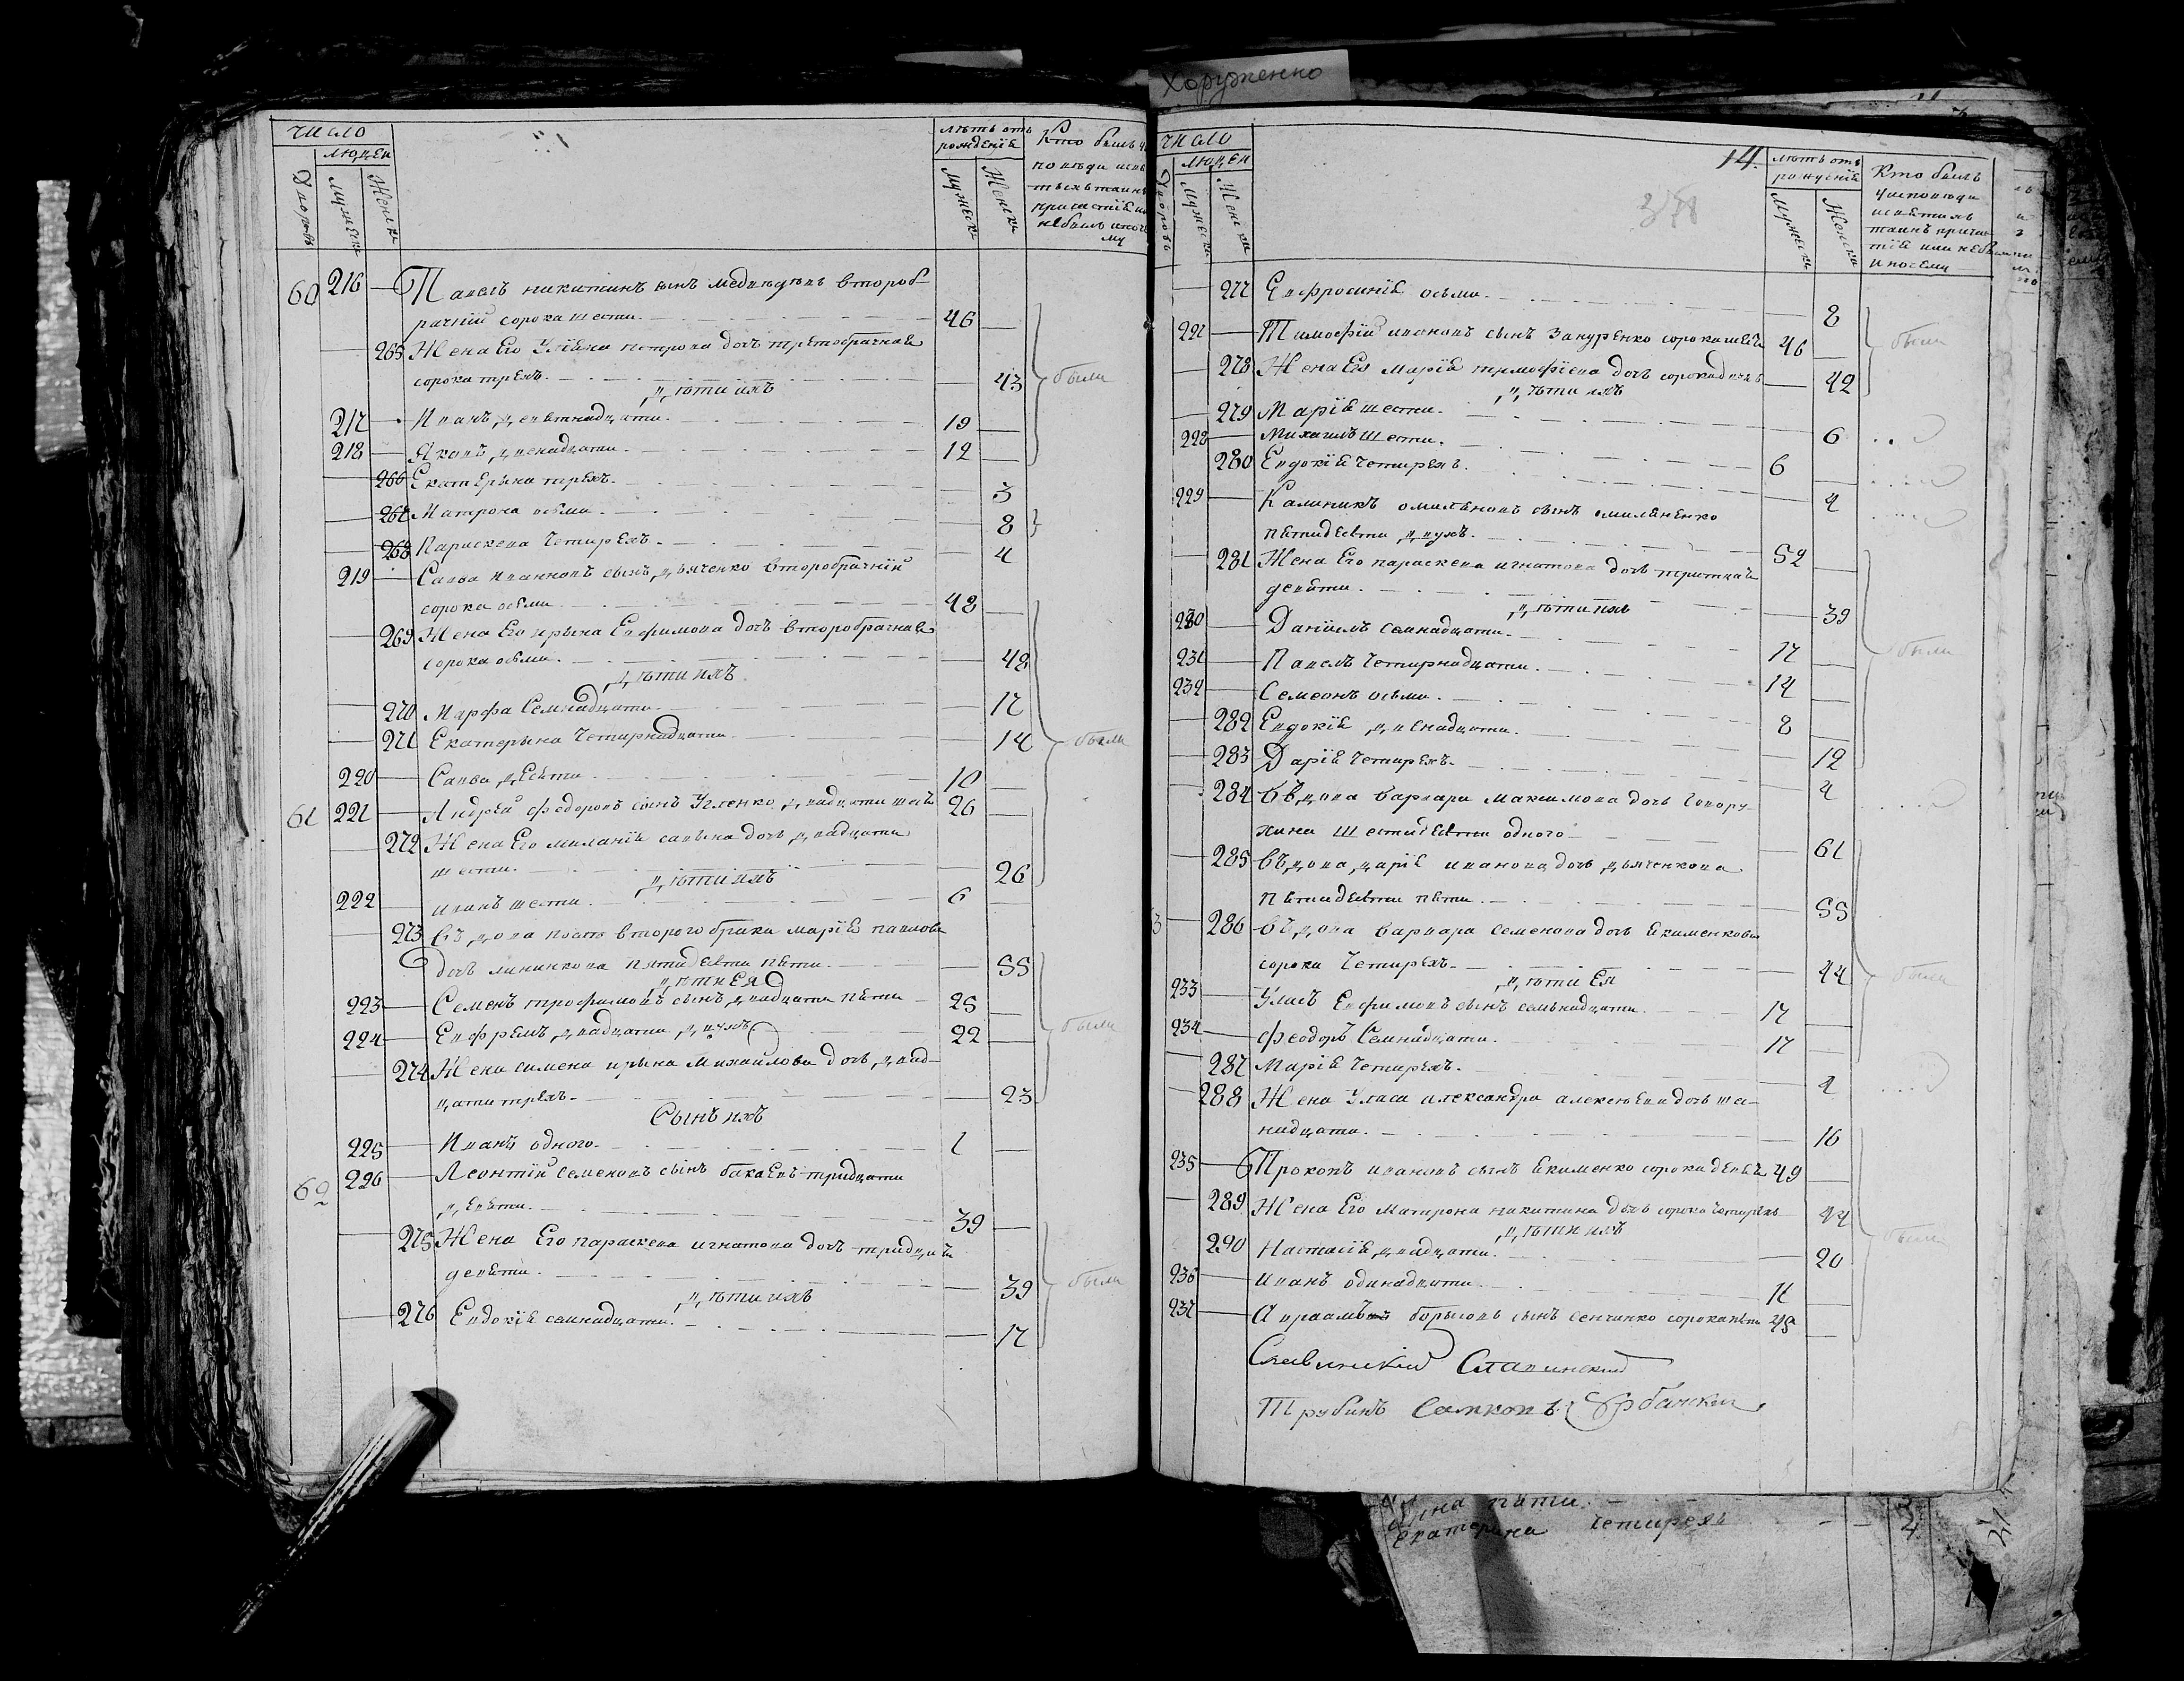 Хоруженко
число
людей
Дворовъ
Мужеска
Женска
лѣтъ отъ
рожденія
Мужеска
Женска
Кто былъ
60 216 Павелъ никитинъ сынъ медвѣдевъ второб-
рачній сорока шести. 46
265 Жена Его Улїяна петрова дочъ третобрачная
сорока трехъ. 43 были
дѣти ихъ
217 Иванъ девятнадцати. 19
218 Яковъ двенадцати. 12
266 Екатерына трехъ. 3
267 Матрона осьми. 8
268 Параскева четирехъ. 4
219 Савва иванновъ сынъ дьяченко второбрачній
сорока осьми. 48
269 Жена Его ирына Евфимова дочъ второбрачная
сорока осьми. 48
дѣти ихъ
270 Марфа Семнадцати. 17
271 Екатерына Четирнадцати. 14 были
220 Савва десяти. 10
61 221 Андрей федоровъ сынъ Угленко двадцати шести 26
272 Жена Его миланія савына дочъ двадцати
шести. 26
дѣти ихъ
222 иванъ шести. 6
273 Въдова послѣ второго брака марїя павлова
дочъ линникова пятидесяти пяти. 55
дѣти Ея
223 Семенъ трофимовъ сынъ двадцати пяти 25
224 Евфремъ двадцати двухъ 22 были
274 Жена симена ирына Михайлова дочъ двад-
цати трехъ. 23
Сынъ ихъ
225 Иванъ одного. 1
62 226 Леонтїй Семеновъ сынъ бакаевъ тридцати
девяти. 39
275 Жена Его параскева игнатова дочъ тридцать
девяти. 39 были
дѣти ихъ
276 Евдокїя семнадцати. 17
число
людей
Дворовъ
Мужеска
Женска
14.
лѣтъ отъ
рожденія
Мужеска
Женска
Кто былъ
у исповѣди
и святыхъ
таинъ прича
тїя или небылъ
и почему
277 Евфросинїя осьми. 8
227 Тимофїй ивановъ сынъ Закуренко сорокашести 46 были
278 Жена Его марїя тимофїева дочъ сорокадвухъ 42
дѣти ихъ
279 Марїя шести. 6
228 Михаилъ шести. 6
280 Евдокїя четирехъ. 4
229 Калиникъ омиляновъ сынъ омиляненко
пятидесяти двухъ. 52
281 Жена Его параскева игнатова дочъ тритцать
девяти. 39
дѣти ихъ
230 Данїилъ семнадцати. 17
231 Павелъ четирнадцати. 14 были
232 Семеонъ осьми. 8
282 Евдокїя двенадцати. 12
283 Дарїя четирехъ. 4
284 Въдова варвара максимова дочъ
шестидесяти одного 61
285 Въдова дарїя иванова дочъ дьяченкова
пятидесяти пяти. 55
286 Въдова варвара семенова дочъ Екименкова
сорока четирехъ. 44 были
дѣти Ея
233 Уласъ Евфимовъ сынъ семьнадцати. 17
234 Феодоръ Семнадцати. 17
287 Марїя четирехъ. 4
288 Жена Уласа александра алексѣева дочъ шес-
надцати. 16
235 Прокопъ ивановъ сынъ Екименко сорокадевять 49
289 Жена Его матрона никитина дочъ сорокъ четирехъ 44 были
дѣти ихъ
290 Настасїя двадцати. 20
236 иванъ одинадцати. 11
237 Авраамъ борысовъ сынъ Сенченко сорокапяти 45
Славинский Славинский
Трубинъ
Екатерина четирехъ 4